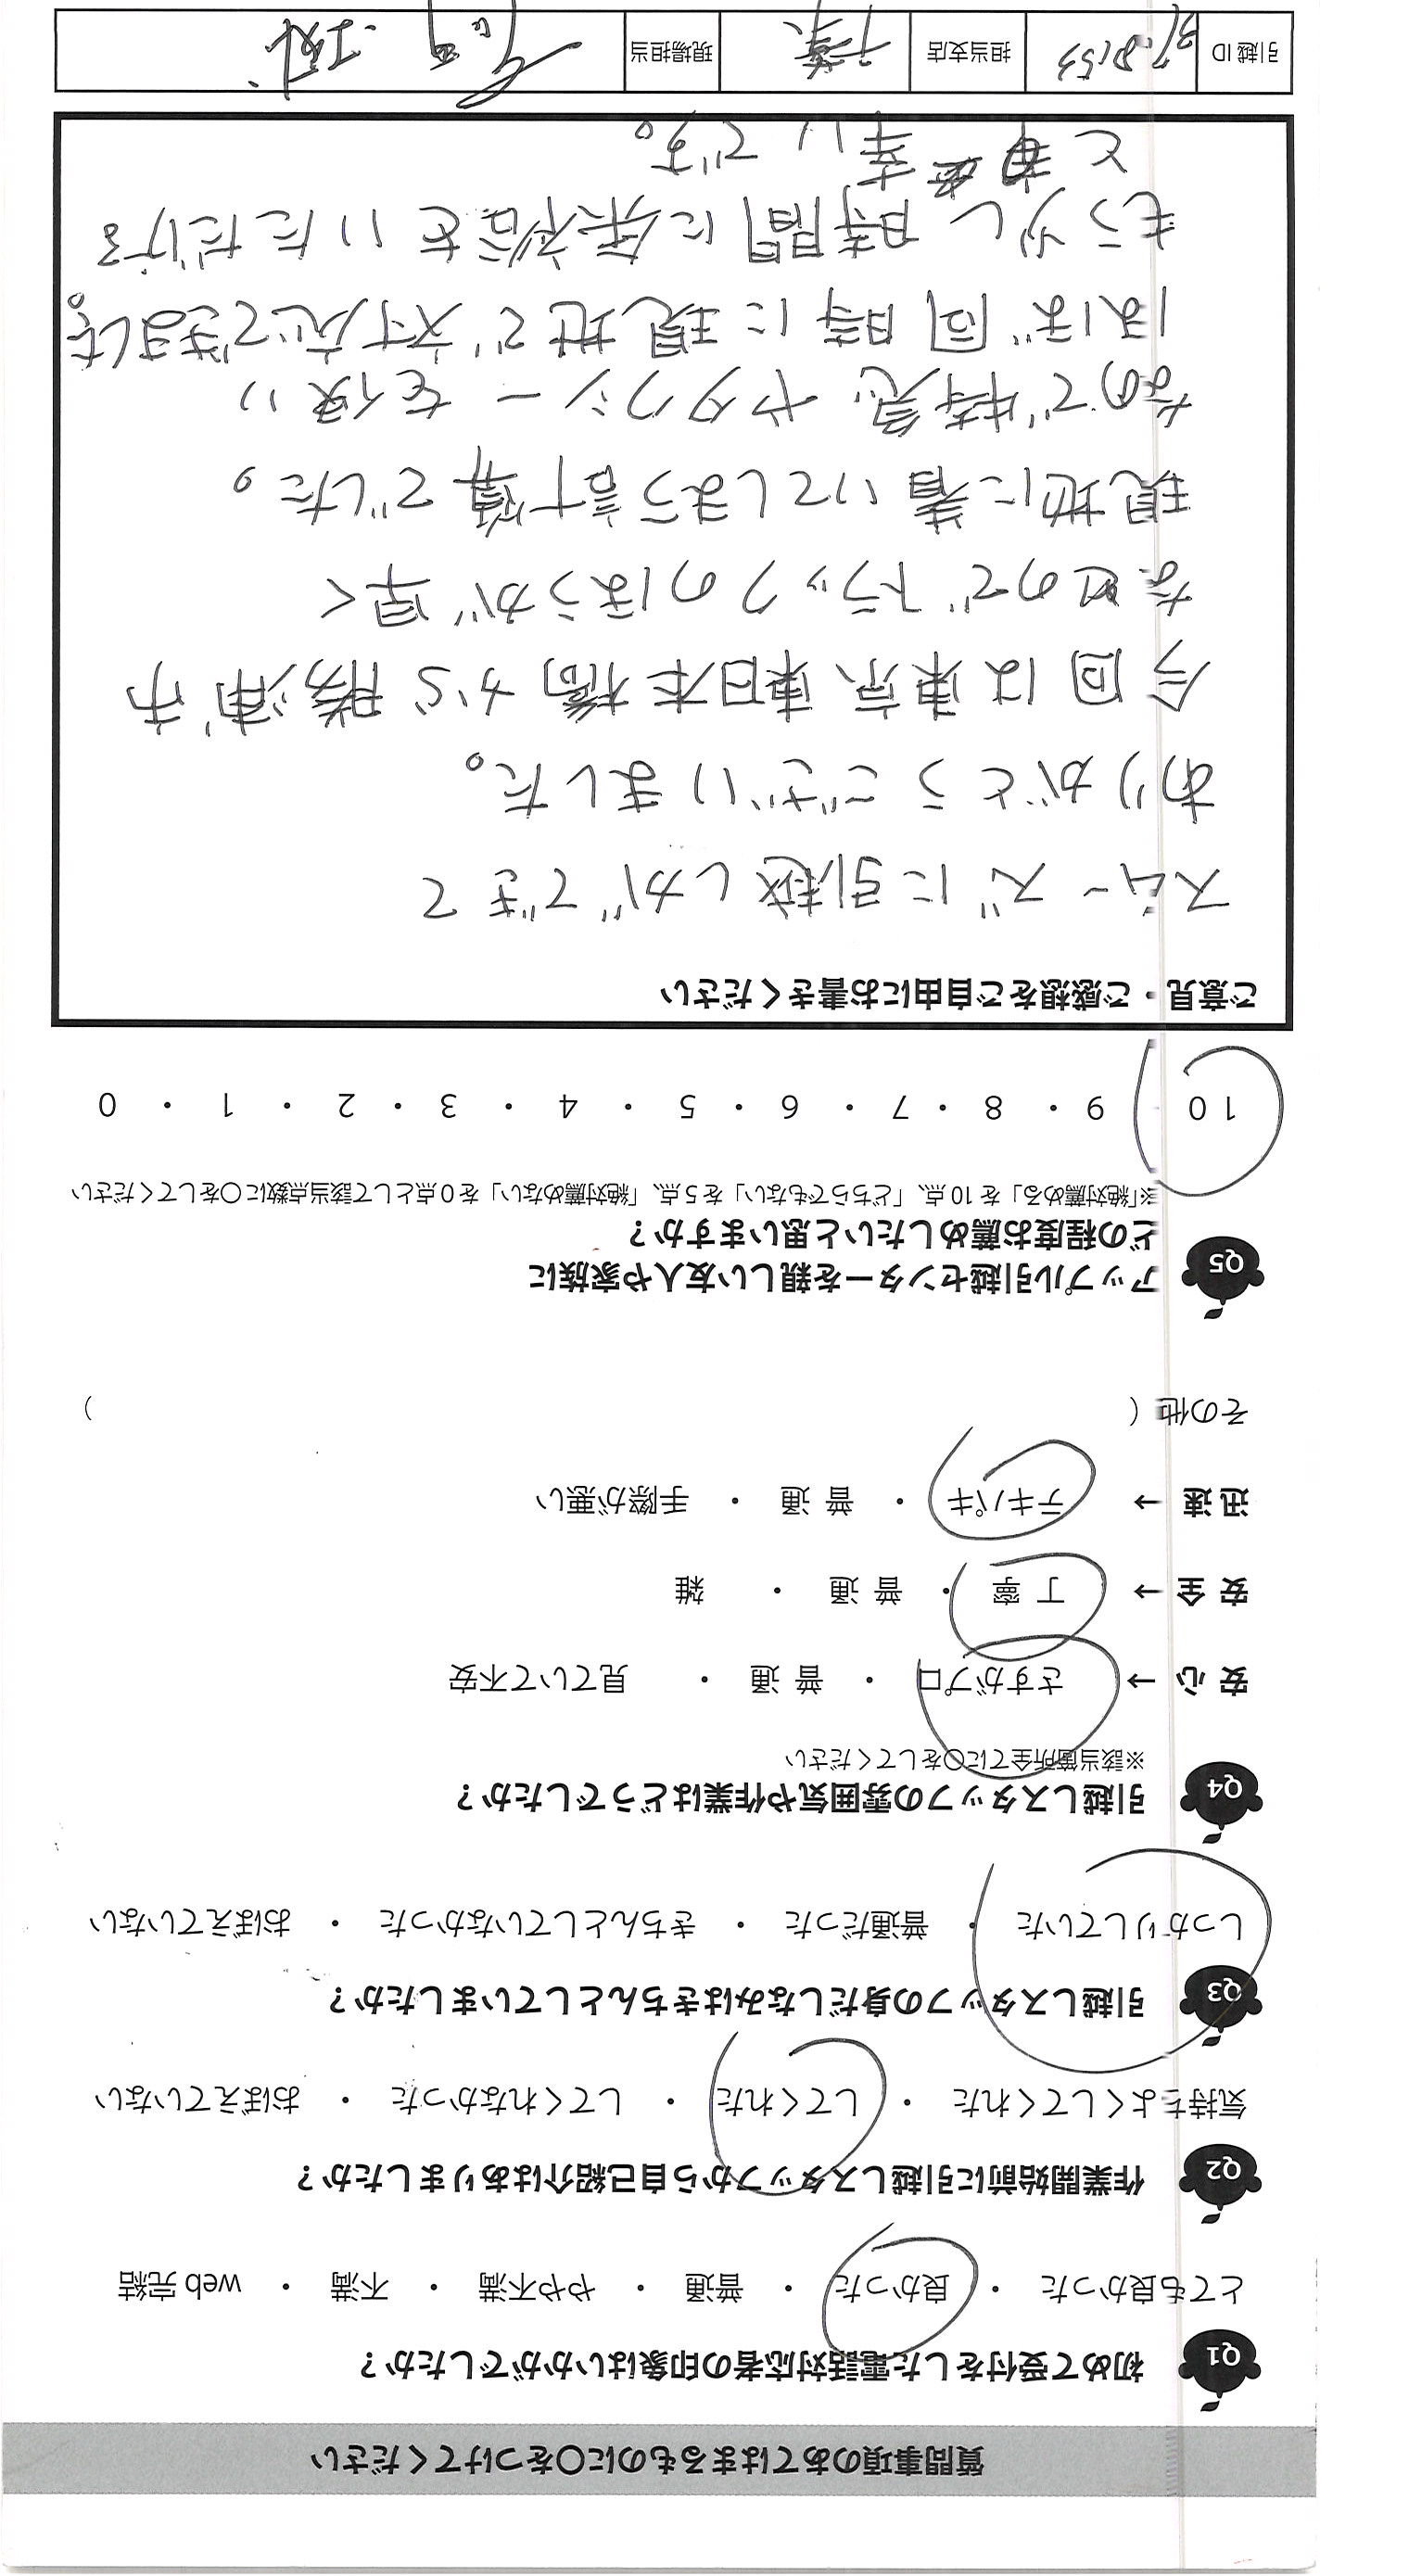 質問事項のあてはまるものに〇をつけてください
Q1 初めて受付をした電話対応者の印象はいかがでしたか？
とても良かった ・ 良かった ・ 普通 ・ やや不満 ・ 不満 ・ web 完結
Q2 作業開始前に引越しスタッフから自己紹介はありましたか？
気持ちよくしてくれた ・ してくれた ・ してくれなかった ・ おぼえていない
Q3 引越しスタッフの身だしなみはきちんとしていましたか？
しっかりしていた ・ 普通だった ・ きちんとしていなかった ・ おぼえていない
Q4 引越しスタッフの雰囲気や作業はどうでしたか？
※該当箇所全てに〇をしてください
安心 → さすがプロ ・ 普通 ・ 見ていて不安
安全 → 丁寧 ・ 普通 ・ 雑
迅速 → テキパキ ・ 普通 ・ 手際が悪い
その他（ ）
Q5 アップル引越センターを親しい友人や家族に
どの程度お薦めしたいと思いますか？
※「絶対薦める」を10点、「どちらでもない」を5点、「絶対薦めない」を0点として該当点数に〇をしてください
10 ・ 9 ・ 8 ・ 7 ・ 6 ・ 5 ・ 4 ・ 3 ・ 2 ・ 1 ・ 0
ご意見・ご感想をご自由にお書きください
スムーズに引越しができて
ありがとうございました。
今回は東京東日本橋から勝浦市
なのでトラックのほうが早く
現地に着いてしまう計算でした。
なので特急やタクシーを使い
ほぼ同時に現地で対応できました。
もう少し時間に余裕をいただける
と幸いです。
引越ID 担当支店 千葉 現場担当